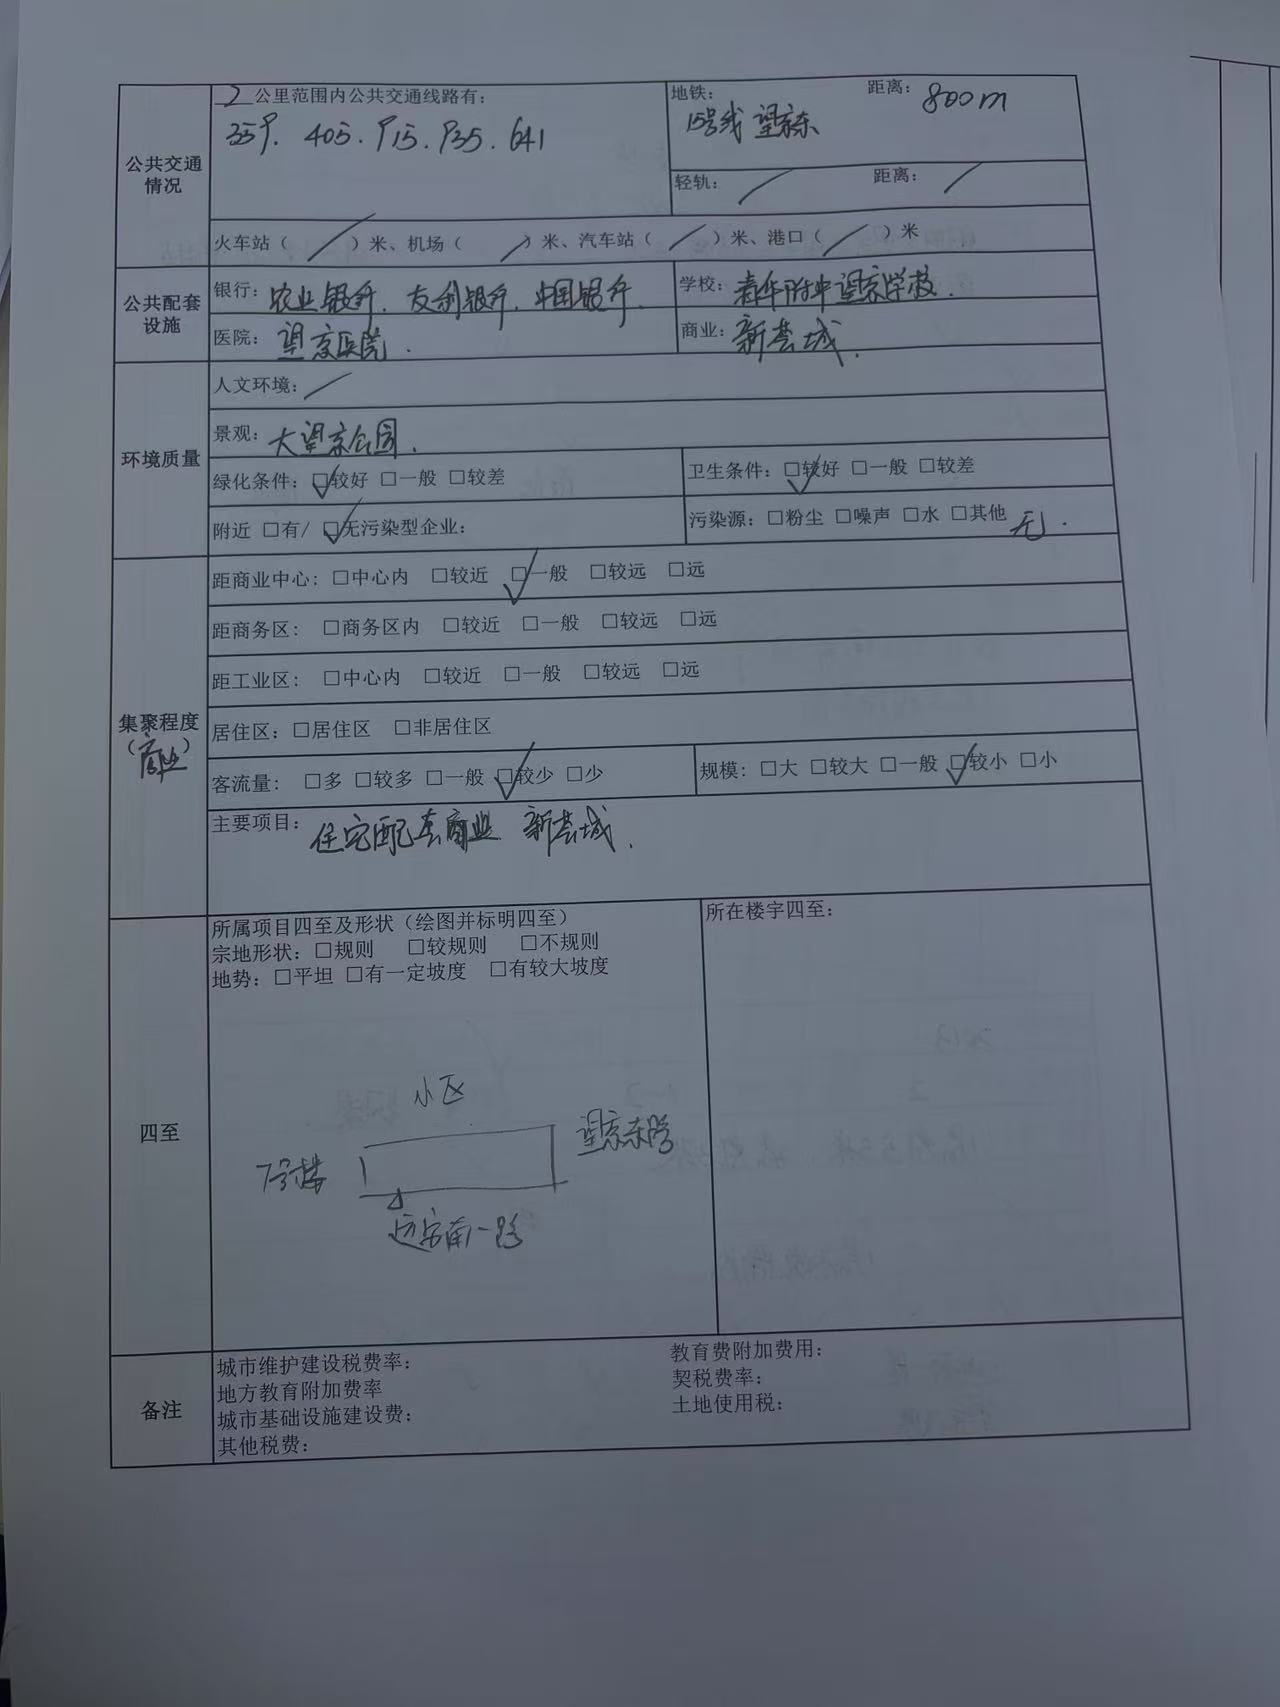 公共交通情况
2 公里范围内公共交通线路有：
359. 405. 915. 935. 641
地铁： 距离：800m
15号线 望京东
轻轨：／ 距离：／
火车站（／）米、机场（／）米、汽车站（／）米、港口（／）米
公共配套设施
银行：农业银行．友利银行．中国银行．
学校：清华附中望京学校．
医院：望京医院．
商业：新荟城．
环境质量
人文环境：／
景观：大望京公园．
绿化条件：☑较好 □一般 □较差
卫生条件：☑较好 □一般 □较差
附近 □有/ ☑无污染型企业：
污染源：□粉尘 □噪声 □水 □其他 无．
集聚程度
（商业）
距商业中心：□中心内 □较近 ☑一般 □较远 □远
距商务区：□商务区内 □较近 □一般 □较远 □远
距工业区：□中心内 □较近 □一般 □较远 □远
居住区：□居住区 □非居住区
客流量：□多 □较多 □一般 ☑较少 □少
规模：□大 □较大 □一般 ☑较小 □小
主要项目：住宅配套商业 新荟城．
四至
所属项目四至及形状（绘图并标明四至）
宗地形状：□规则 □较规则 □不规则
地势：□平坦 □有一定坡度 □有较大坡度
小区
望京东路
7号楼
南一路
所在楼宇四至：
备注
城市维护建设税费率：
教育费附加费用：
地方教育附加费率
契税费率：
城市基础设施建设费：
土地使用税：
其他税费：